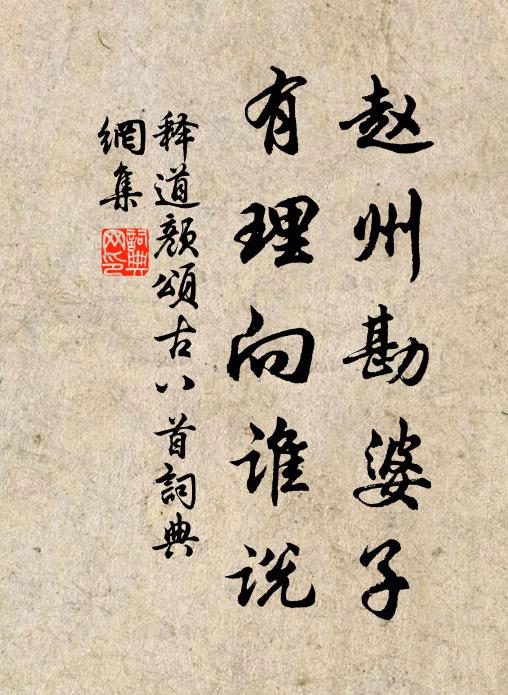 赵州勘婆子
有理向谁说
释道颜颂古八首詞典
網集
詞典
网印